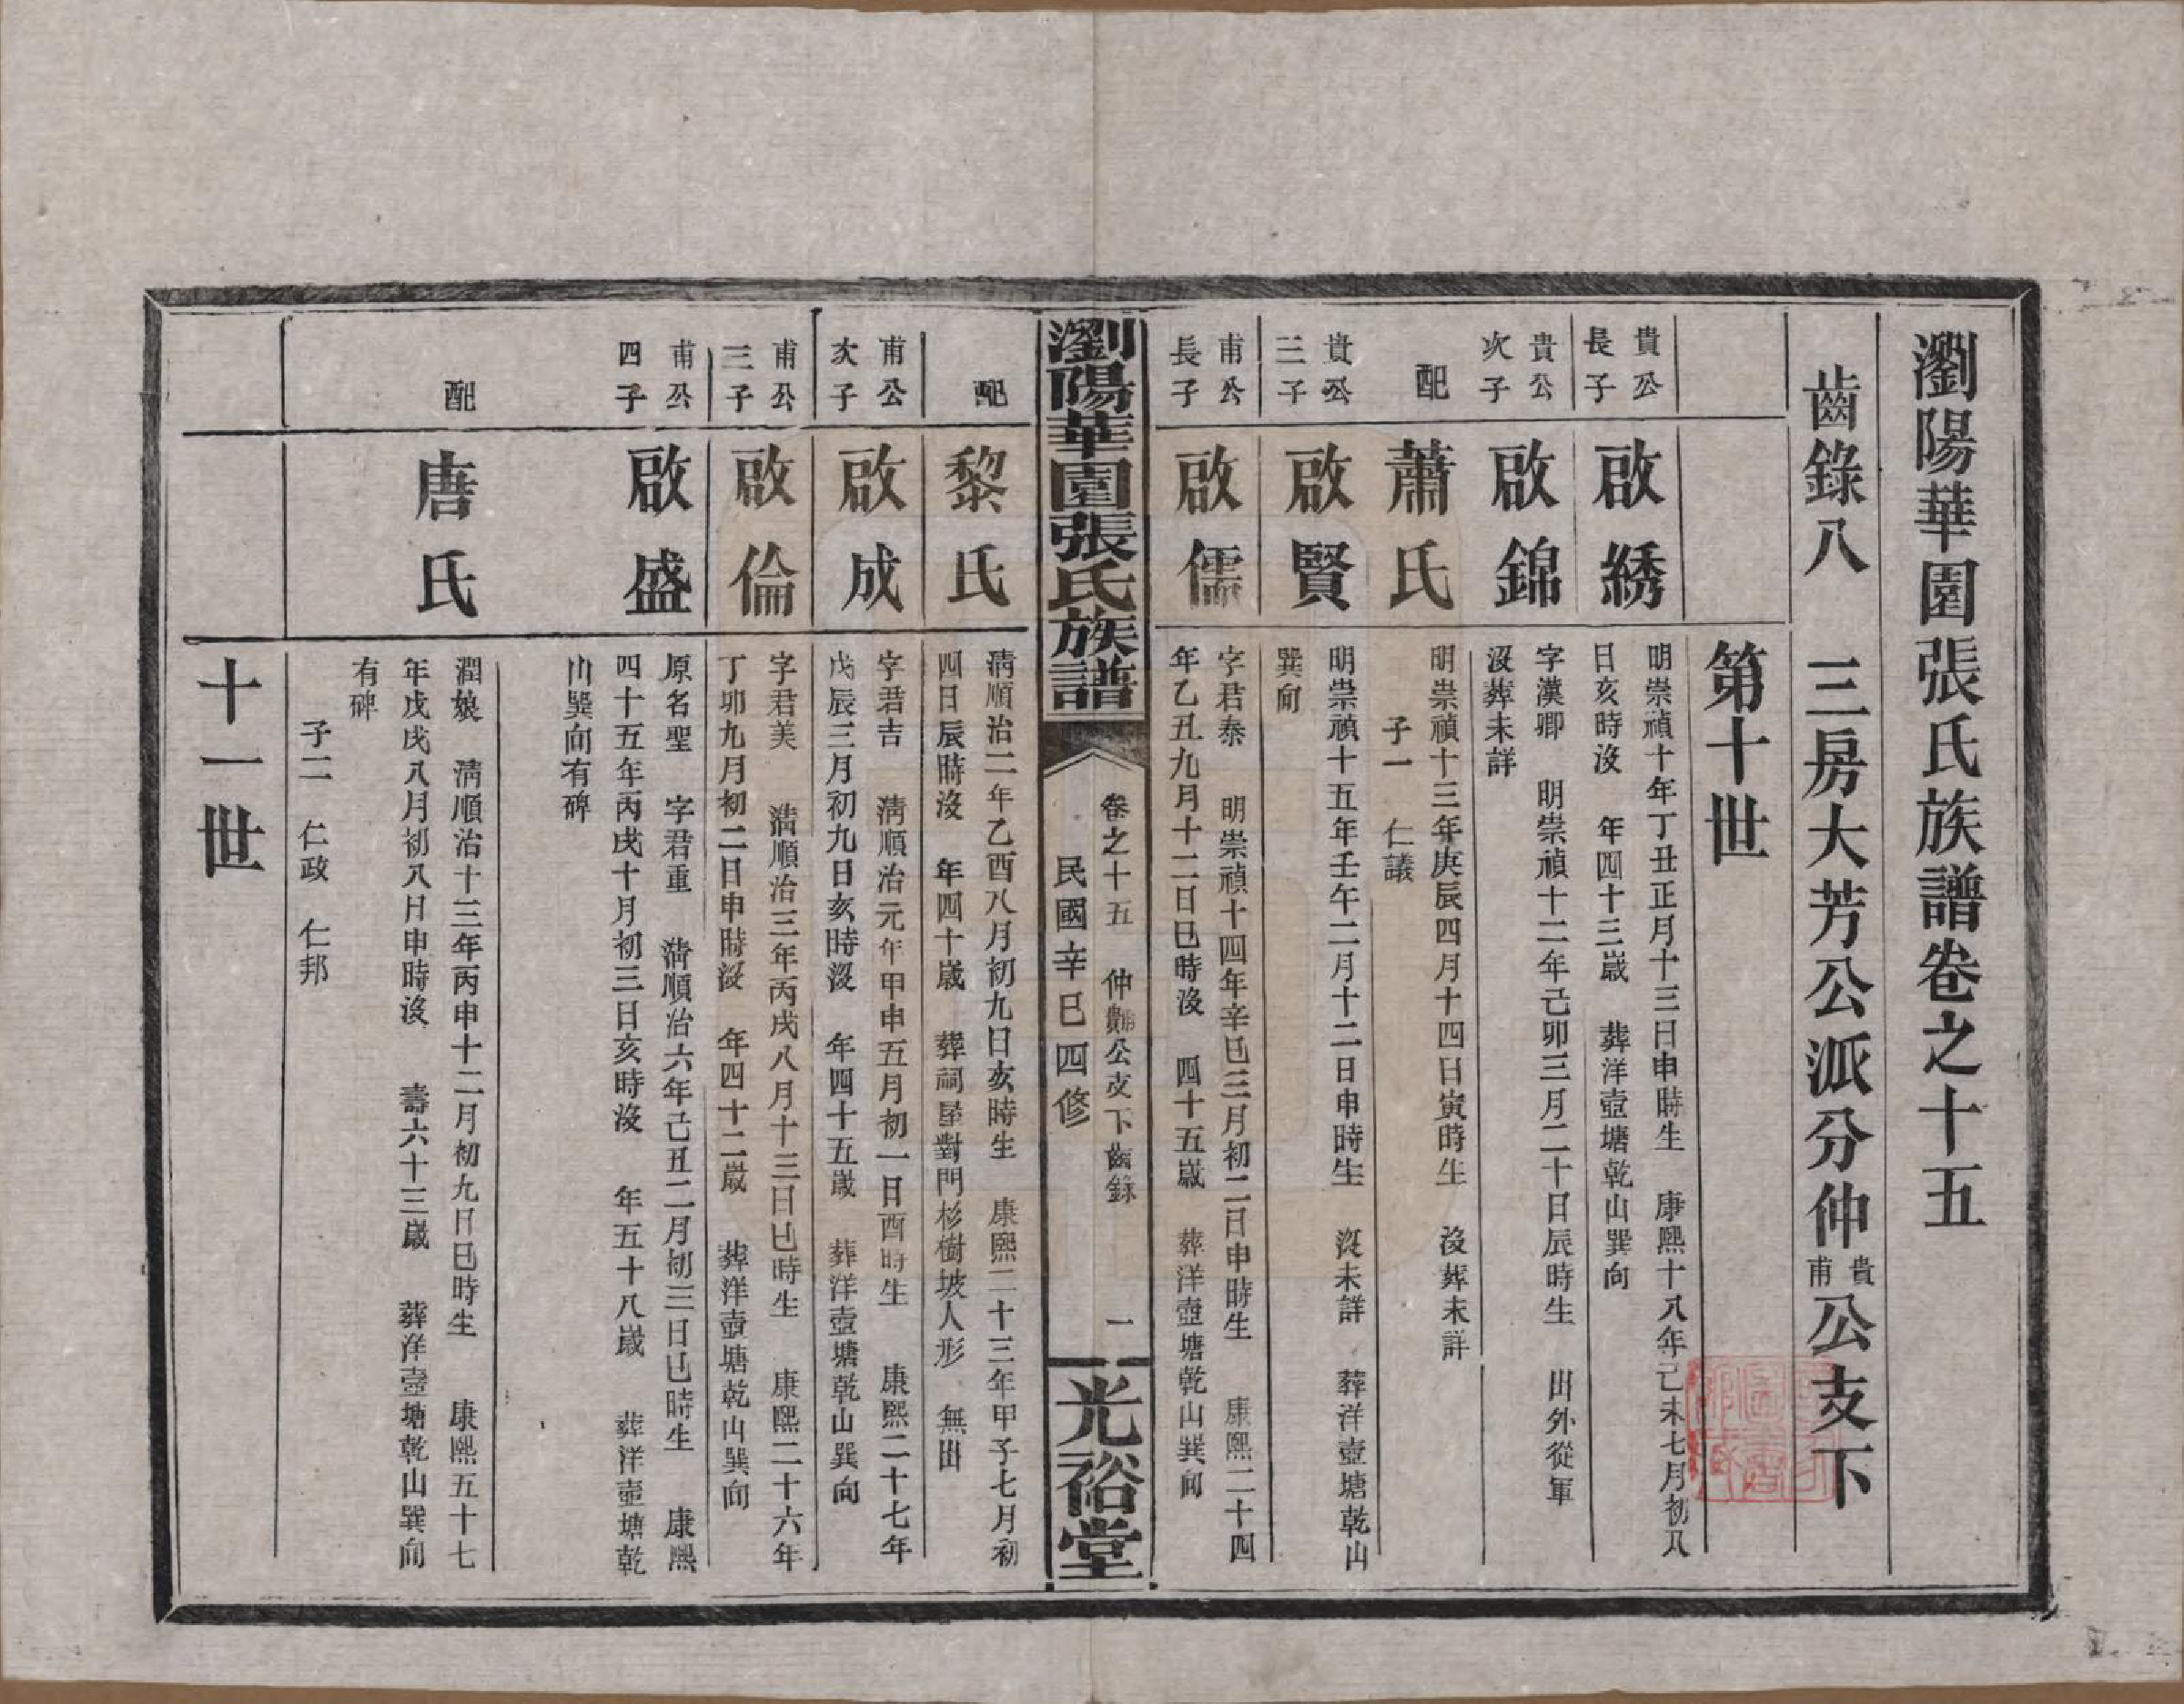 瀏陽華園張氏族譜卷之十五
齒錄八 三房大芳公派分仲貴甫公支下
第十世
貴公長子
啟綉
明崇禎十年丁丑正月十三日申時生 康熙十八年己未七月初八
日亥時沒 年四十三歲 葬洋壼塘乾山巽向
貴公次子
啟錦
字漢卿 明崇禎十二年己卯三月二十日辰時生 出外從軍
沒葬未詳
配
蕭氏
明崇禎十三年庚辰四月十四日寅時生 沒葬未詳
子一 仁議
貴公三子
啟賢
明崇禎十五年壬午二月十二日申時生 沒未詳 葬洋壼塘乾山
巽向
甫公長子
啟儒
字君泰 明崇禎十四年辛巳三月初二日申時生 康熙二十四
年乙丑九月十二日巳時沒 四十五歲 葬洋壼塘乾山巽向
瀏陽華園張氏族譜
卷之十五 仲貴甫公支下齒錄 一
民國辛巳四修
光裕堂
配
黎氏
淸順治二年乙酉八月初九日亥時生 康熙二十三年甲子七月初
四日辰時沒 年四十歲 葬祠屋對門杉樹坡人形 無出
甫公次子
啟成
字君吉 淸順治元年甲申五月初一日酉時生 康熙二十七年
戊辰三月初九日亥時沒 年四十五歲 葬洋壼塘乾山巽向
甫公三子
啟倫
字君美 淸順治三年丙戌八月十三日巳時生 康熙二十六年
丁卯九月初二日申時沒 年四十二歲 葬洋壼塘乾山巽向
甫公四子
啟盛
原名聖 字君重 淸順治六年己丑二月初三日巳時生 康熙
四十五年丙戌十月初三日亥時沒 年五十八歲 葬洋壼塘乾
山巽向有碑
配
唐氏
潤娘 淸順治十三年丙申十二月初九日巳時生 康熙五十七
年戊戌八月初八日申時沒 壽六十三歲 葬洋壼塘乾山巽向
有碑
子二 仁政 仁邦
十一世